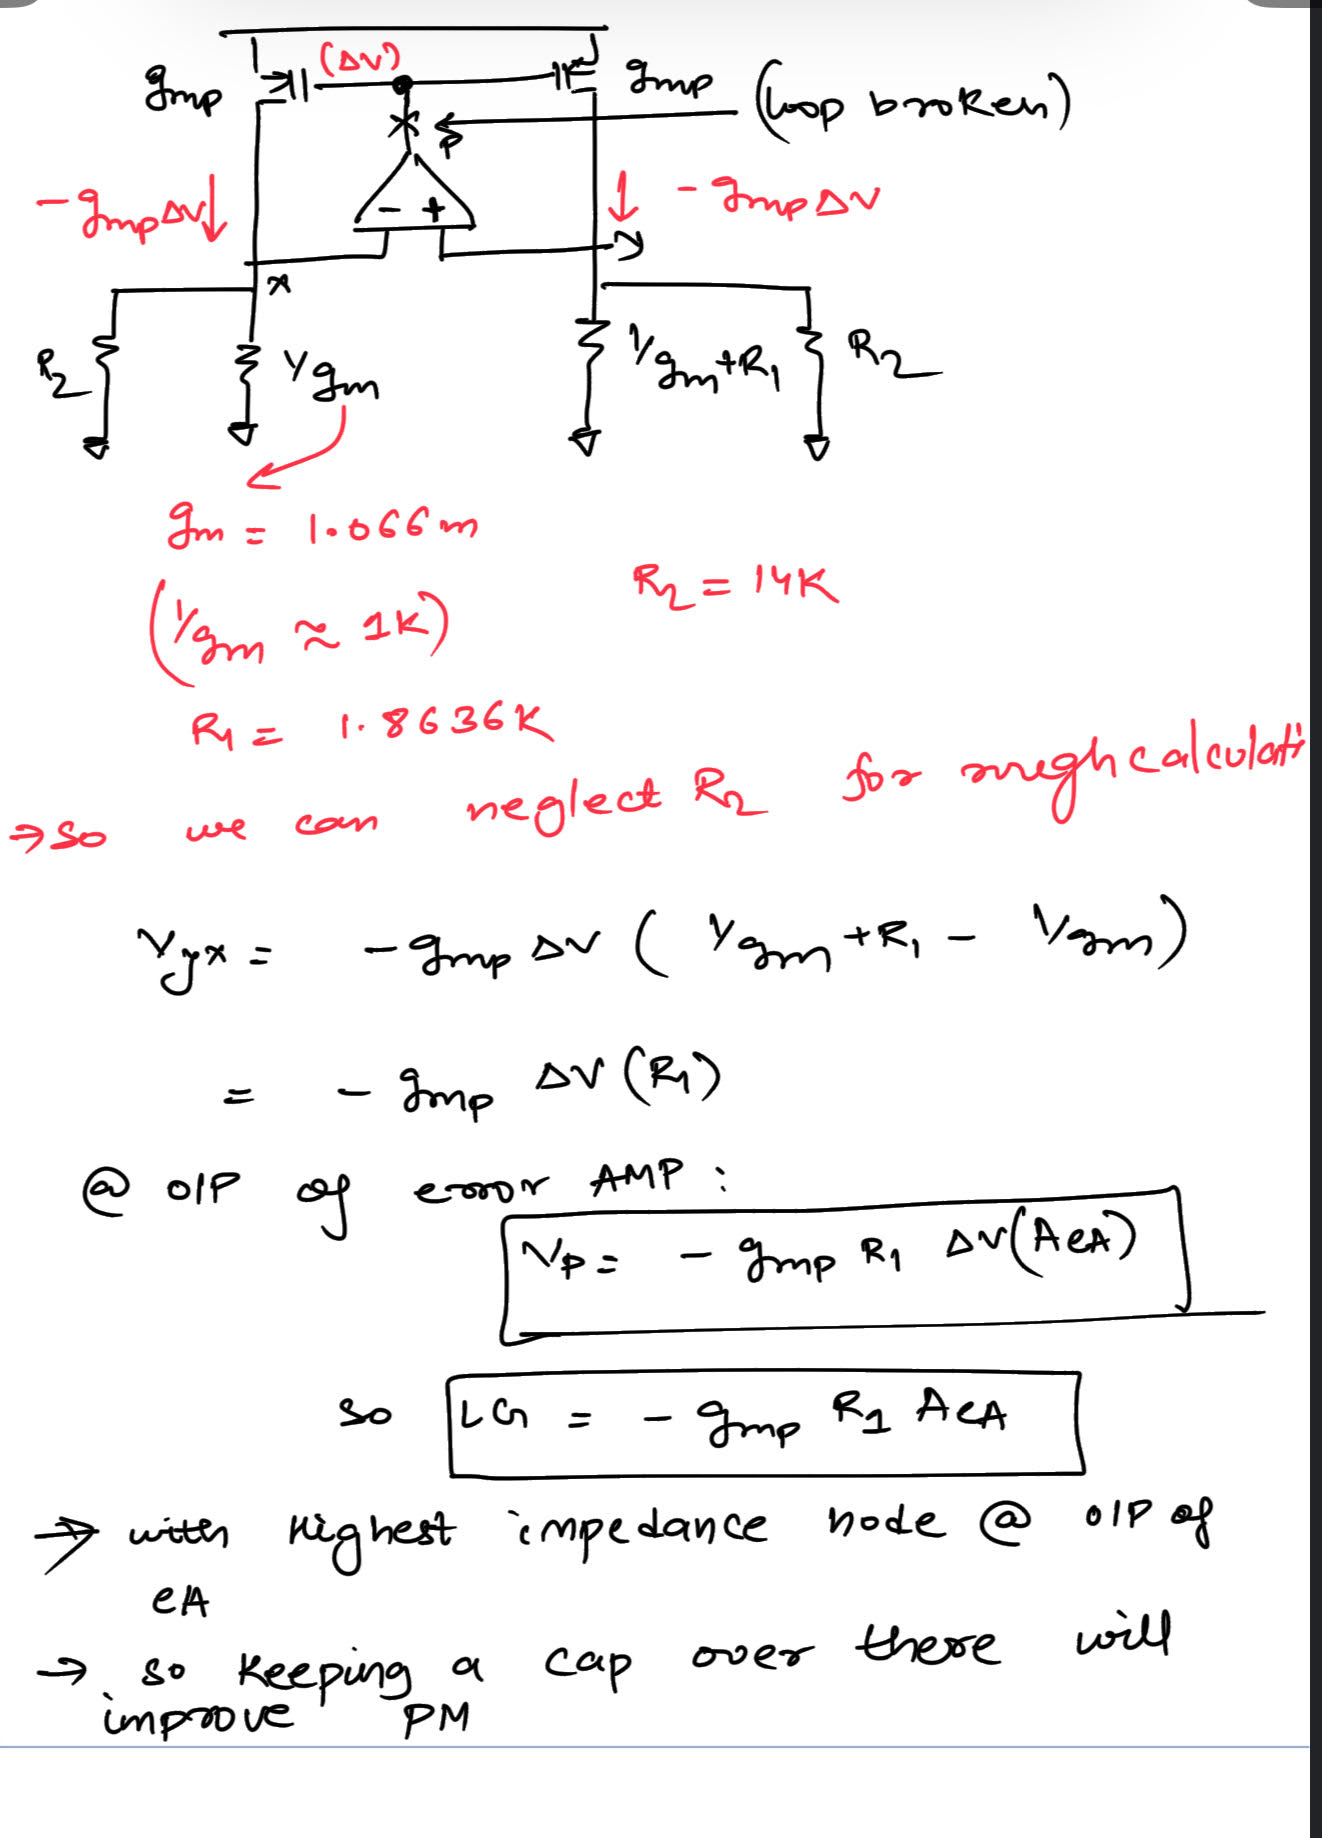 (ΔV)
gmp
gmp
(loop broken)
P
-gmpΔV↓
- +
↓ -gmpΔV
x
y
R2
1/gm
1/gm+R1
R2
gm = 1.066m
R2 = 14K
(1/gm ≈ 1K)
R1 = 1.8636K
→ so we can neglect R2 for rough calculati
Vyx = -gmp ΔV ( 1/gm + R1 - 1/gm)
= - gmp ΔV (R1)
@ O/P of error AMP :
Vp = - gmp R1 ΔV(AeA)
so LG = - gmp R1 AeA
→ with Highest impedance node @ O/P of
eA
→ so keeping a cap over there will
improve PM